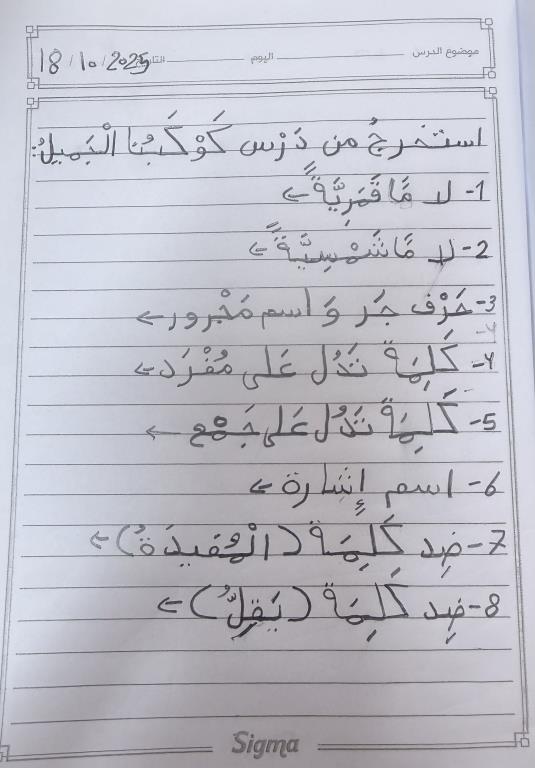 موضوع الدرس اليوم التاريخ 18/10/2025
استخرجُ من دَرْس كَوْكَبُنا الْجَميلُ:
1- لا مًا قَمَرِيَّةً ←
2- لا مًا شَمْسِيَّةً ←
3- حَرْف جَر وَ اسم مَجْرور ←
4- كَلِمَةً تَدُل عَلى مُفْرَد ←
5- كَلِمَةً تَدُل عَلى جَمْع ←
6- اسم إِشارة ←
7- ضِد كَلِمَة (الْمُفيدَةُ) ←
8- ضِد كَلِمَة (يَقِلُّ) ←
Sigma